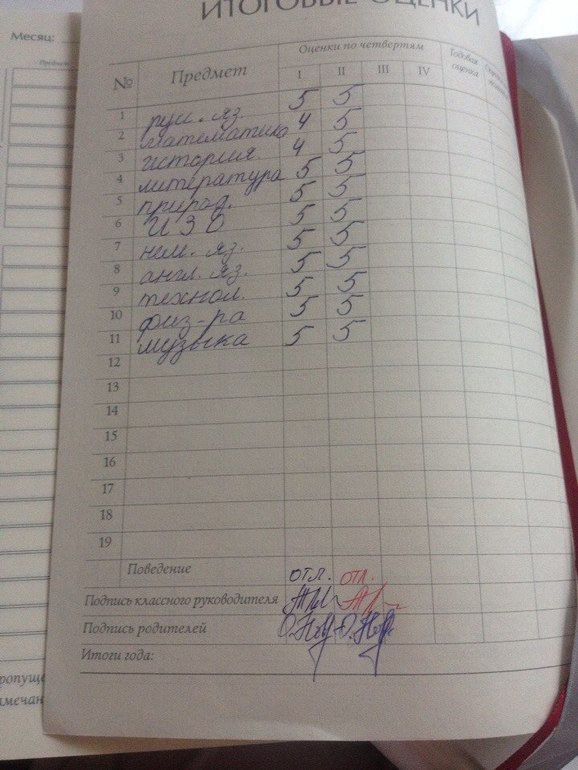 ИТОГОВЫЕ ОЦЕНКИ
Месяц:
№ Предмет Оценки по четвертям Годовая оценка
I II III IV
1 русс. яз. 5 5
2 математика 4 5
3 история 4 5
4 литература 5 5
5 природ. 5 5
6 ИЗО 5 5
7 нем. яз. 5 5
8 англ. яз. 5 5
9 технол. 5 5
10 физ-ра 5 5
11 музыка 5 5
12
13
14
15
16
17
18
19
Поведение отл. отл.
Подпись классного руководителя
Подпись родителей
Итоги года: